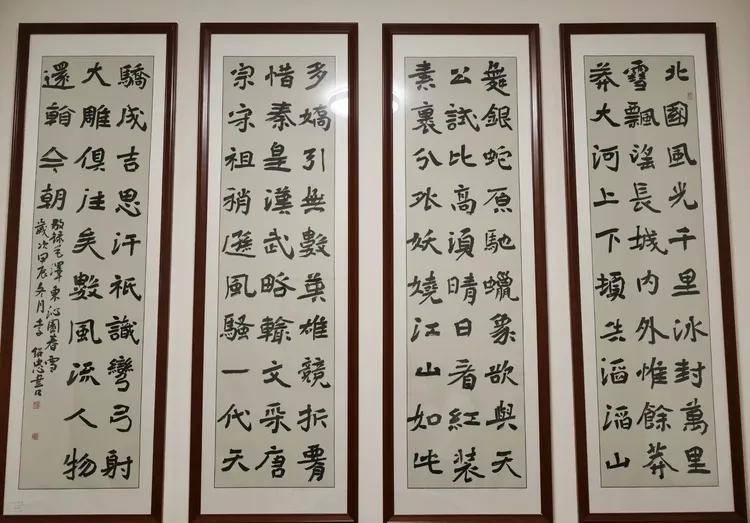 北國風光千里冰封萬里
雪飄望長城内外惟餘莽
莽大河上下頓失滔滔山
舞銀蛇原馳蠟象欲與天
公試比高須晴日看紅裝
素裹分外妖嬈江山如此
多嬌引無數英雄競折腰
惜秦皇漢武略輸文采唐
宗宋祖稍遜風騷一代天
驕成吉思汗祇識彎弓射
大雕俱往矣數風流人物
還看今朝
敬錄毛澤東沁園春雪
歲次甲辰冬月李紹忠書